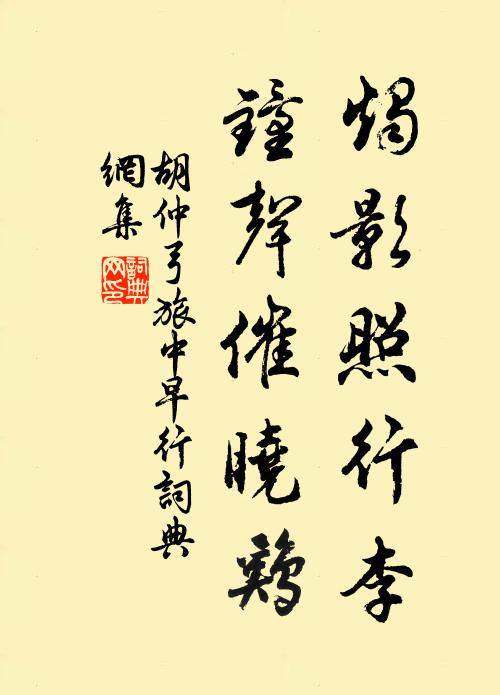 燭影照行李
鐘聲催曉鷄
胡仲弓旅中早行詞典
網集
詞典網印